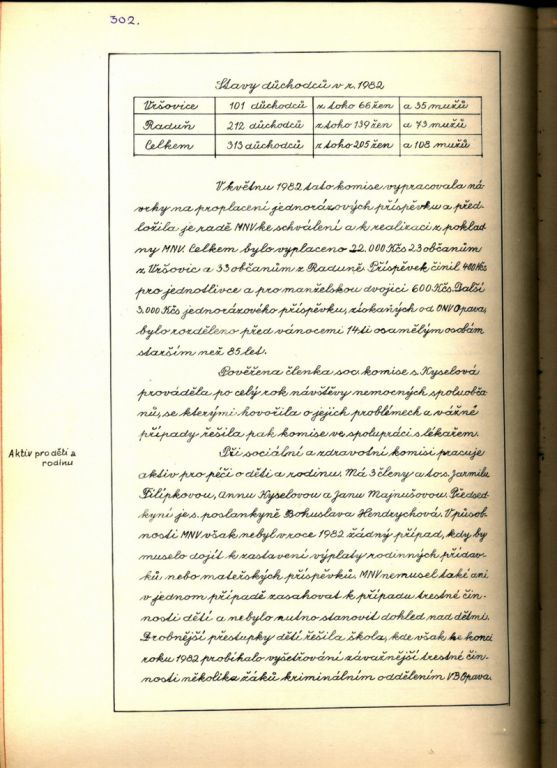 302.
Stavy důchodců v r. 1982
Vršovice 101 důchodců z toho 66 žen a 35 mužů
Raduň 212 důchodců z toho 139 žen a 73 mužů
Celkem 313 důchodců z toho 205 žen a 108 mužů
V květnu 1982 tato komise vypracovala ná-
vrhy na proplacení jednorázových příspěvků a před-
ložila je radě MNV ke schválení a k realizaci z poklad-
ny MNV. Celkem bylo vyplaceno 22.000 Kčs 23 občanům
z Vršovic a 33 občanům z Raduně. Příspěvek činil 400 Kčs
pro jednotlivce a pro manželskou dvojici 600 Kčs. Další
3.000 Kčs jednorázového příspěvku, získaných od ONV Opava,
bylo rozděleno před vánocemi 14ti osamělým osobám
starším než 85 let.
Pověřena členka soc. komise s. Kyselová
prováděla po celý rok návštěvy nemocných spoluobča-
nů, se kterými hovořila o jejich problémech a vážné
případy řešila pak komise ve spolupráci s lékařem.
Aktiv pro děti a
rodinu
Při sociální a zdravotní komisi pracuje
aktiv pro péči o děti a rodinu. Má 3 členy a to s. Jarmilu
Filípkovou, Annu Kyselovou a Janu Majnušovou. Předsed-
kyní je s. poslankyně Bohuslava Hendrychová. V působ-
nosti MNV však nebyl v roce 1982 žádný případ, kdy by
muselo dojít k zastavení výplaty rodinných přídav-
ků nebo mateřských příspěvků. MNV nemusel také ani
v jednom případě zasahovat k případu trestné čin-
nosti dětí a nebylo nutno stanovit dohled nad dětmi.
Drobnější přestupky dětí řešila škola, kde však ke konci
roku 1982 probíhalo vyšetřování závažnější trestné čin-
nosti několika žáků kriminálním oddělením VB Opava.